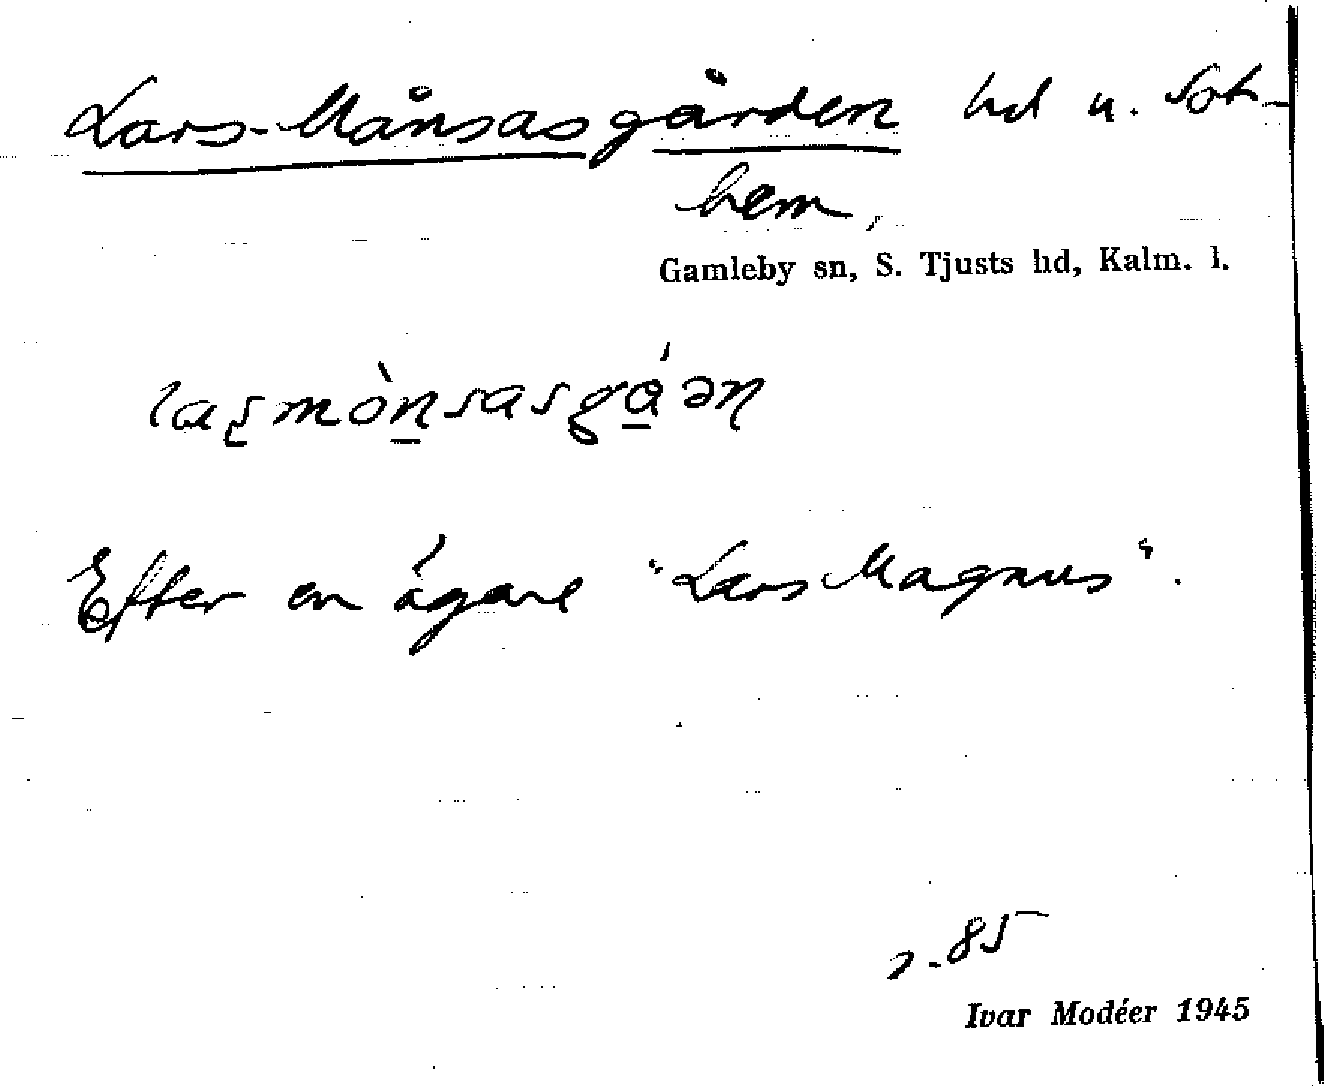 Lars-Månsasgården hd u. Sot-
hem,
Gamleby sn, S. Tjusts hd, Kalm. l.
Efter en ägare "Lars Magnus".
s. 85
Ivar Modéer 1945